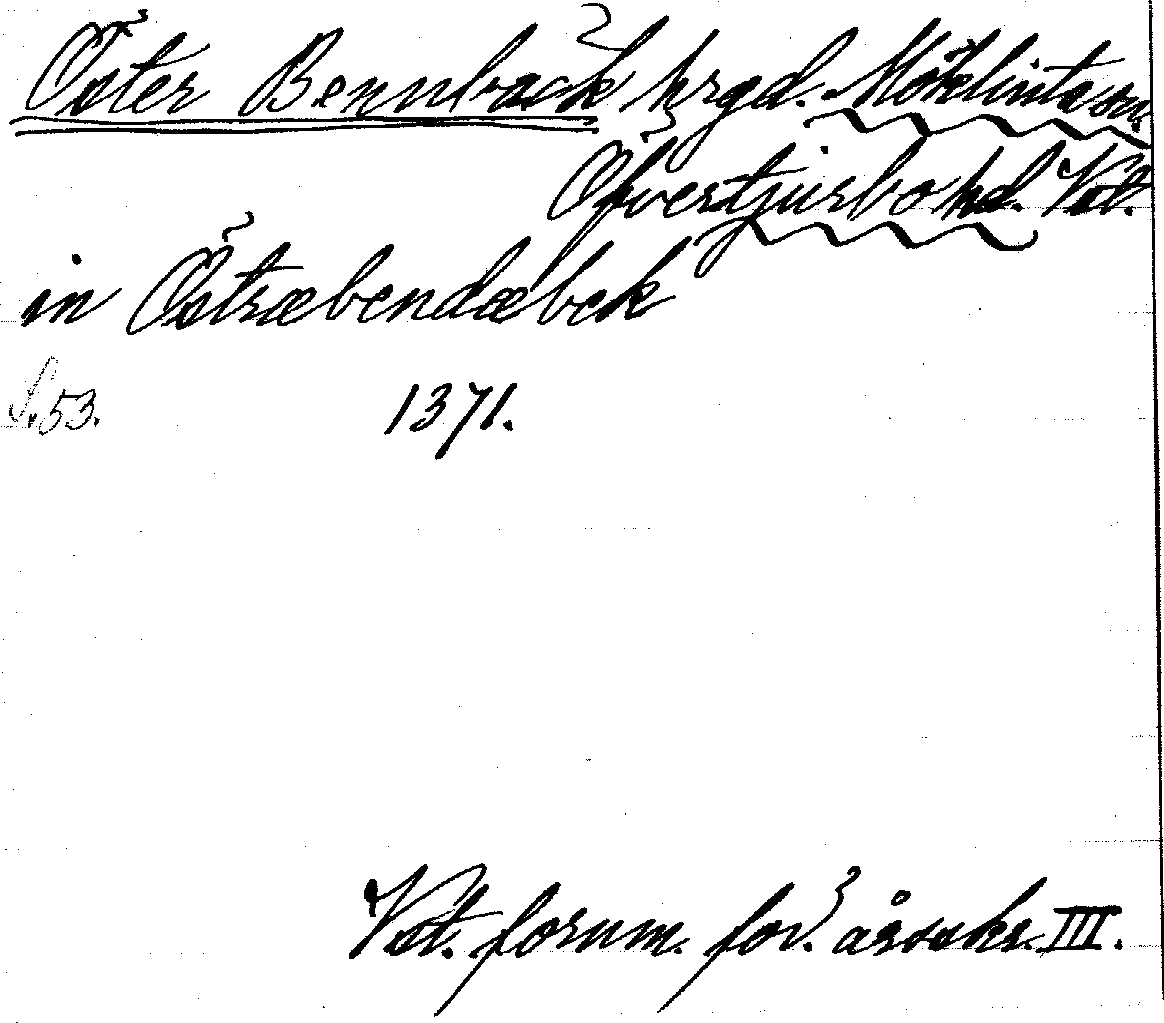 Öster Bennbäck hrgd. Möklinta sn.
Öfvertjurbo hd. Vst.
in Østræbendæbek
S. 53. 1371.
Vst. fornm. för. årsskr. III.